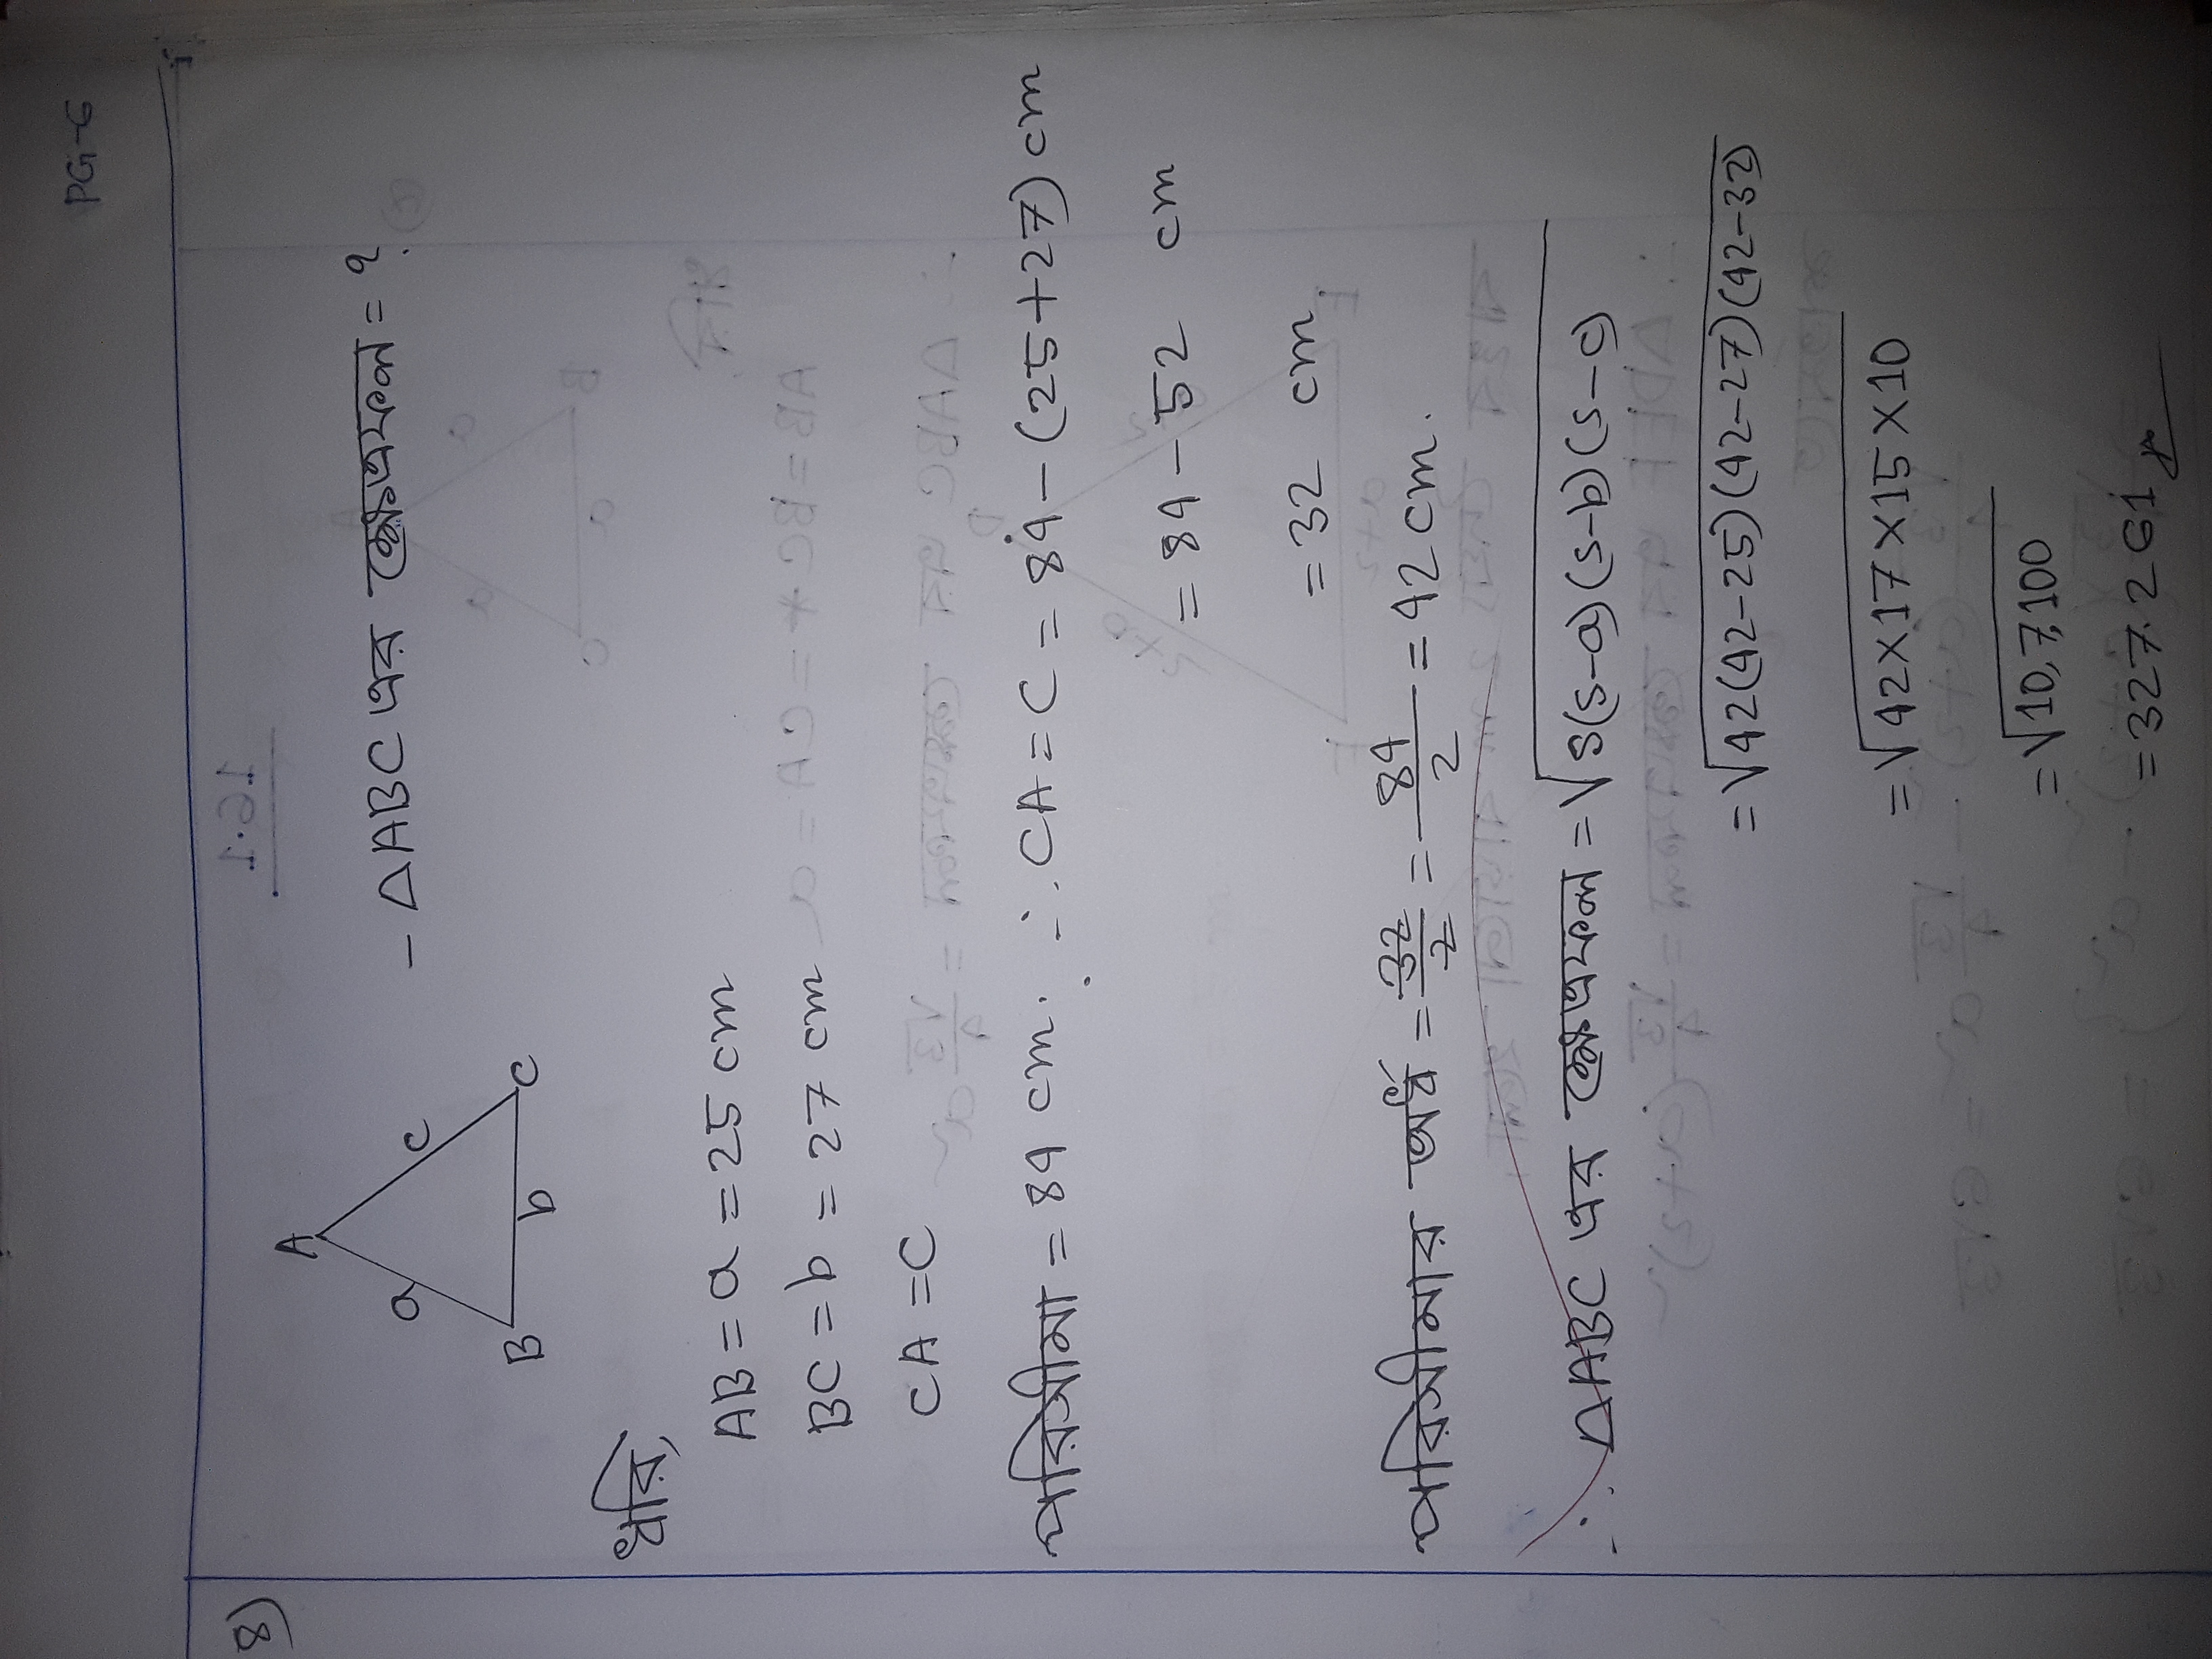 PG-6
8)
A
a
c
B
b
C
- △ABC এর ক্ষেত্রফল = ?
ধরি,
AB = a = 25 cm
BC = b = 27 cm
CA = C
পরিসীমা = 84 cm. ∴ CA = C = 84 - (25+27) cm
= 84 - 52 cm
= 32 cm.
পরিসীমার অর্ধ = 32/2 = 84/2 = 42 cm.
∴ △ABC এর ক্ষেত্রফল = √s(s-a)(s-b)(s-c)
= √42(42-25)(42-27)(42-32)
= √42×17×15×10
= √10,7,100
= 327.261